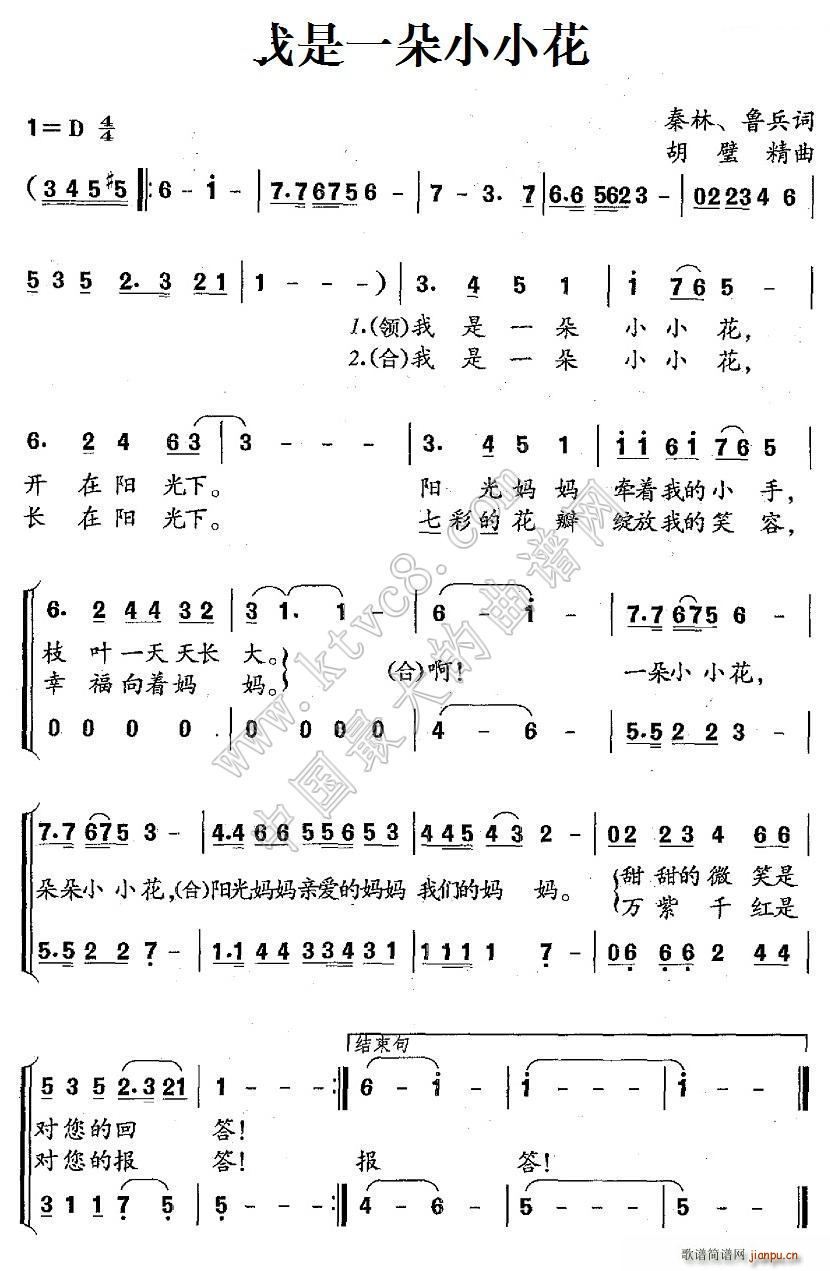 我是一朵小小花
1=D 4/4
秦林、鲁兵词
胡璧精曲
(3 4 5 #5 ‖: 6 - i - | 7.7 6756 - | 7 - 3. 7 | 6.6 5623 - | 02234 6
5 3 5 2. 3 21 | 1 - - -) | 3. 4 5 1 | i 76 5 -
1.(领)我 是 一 朵 小 小 花,
2.(合)我 是 一 朵 小 小 花,
6. 2 4 63 | 3 - - - | 3. 4 5 1 | i i 6 i 76 5
开 在 阳 光 下。 阳 光 妈 妈 牵着我的小 手,
长 在 阳 光 下。 七彩的花 瓣 绽放我的笑 容,
6. 2 4 4 3 2 | 3 1. 1 - | 6 - i - | 7.7 675 6 -
枝 叶一天天长 大。 (合)啊! 一朵小 小花,
幸 福向着妈 妈。
0 0 0 0 | 0 0 0 0 | 4 - 6 - | 5.5 2 2 3 -
7.7 675 3 - | 4.4 6 6 5 5 6 5 3 | 4 4 5 5 4 3 2 - | 02 23 4 66
朵朵小 小花,(合)阳光妈妈亲爱的妈妈 我们的妈 妈。 甜甜的微 笑是
万紫 千 红是
5.5 2 2 7 - | 1.1 4 4 3 3 4 3 1 | 1 1 1 1 1 7 - | 06 6 6 2 44
结束句
5 3 5 2.321 | 1 - - - :‖ 6 - i - | i - - - | i - - - ‖
对您的回 答!
对您的报 答! 报 答!
3 1 1 7 5 | 5 - - - :‖ 4 - 6 - | 5 - - - | 5 - - - ‖
www.ktvc8.com
中国最大的曲谱网
歌谱简谱网
jianpu.cn